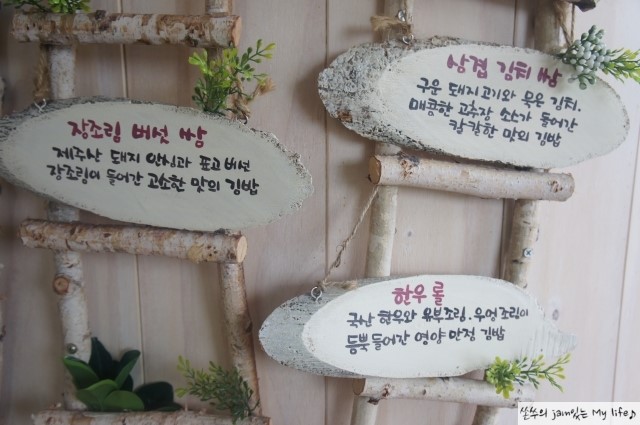 장조림 버섯 쌈
제주산 돼지 안심과 표고버섯
장조림이 들어간 고소한 맛의 김밥
삼겹 김치 쌈
구운 돼지고기와 묵은 김치,
매콤한 고추장 소스가 들어간
칼칼한 맛의 김밥
한우 롤
국산 한우와 유부조림, 우엉조림이
듬뿍 들어간 영양 만점 김밥
쏠쑤의 jam있는 My life♪